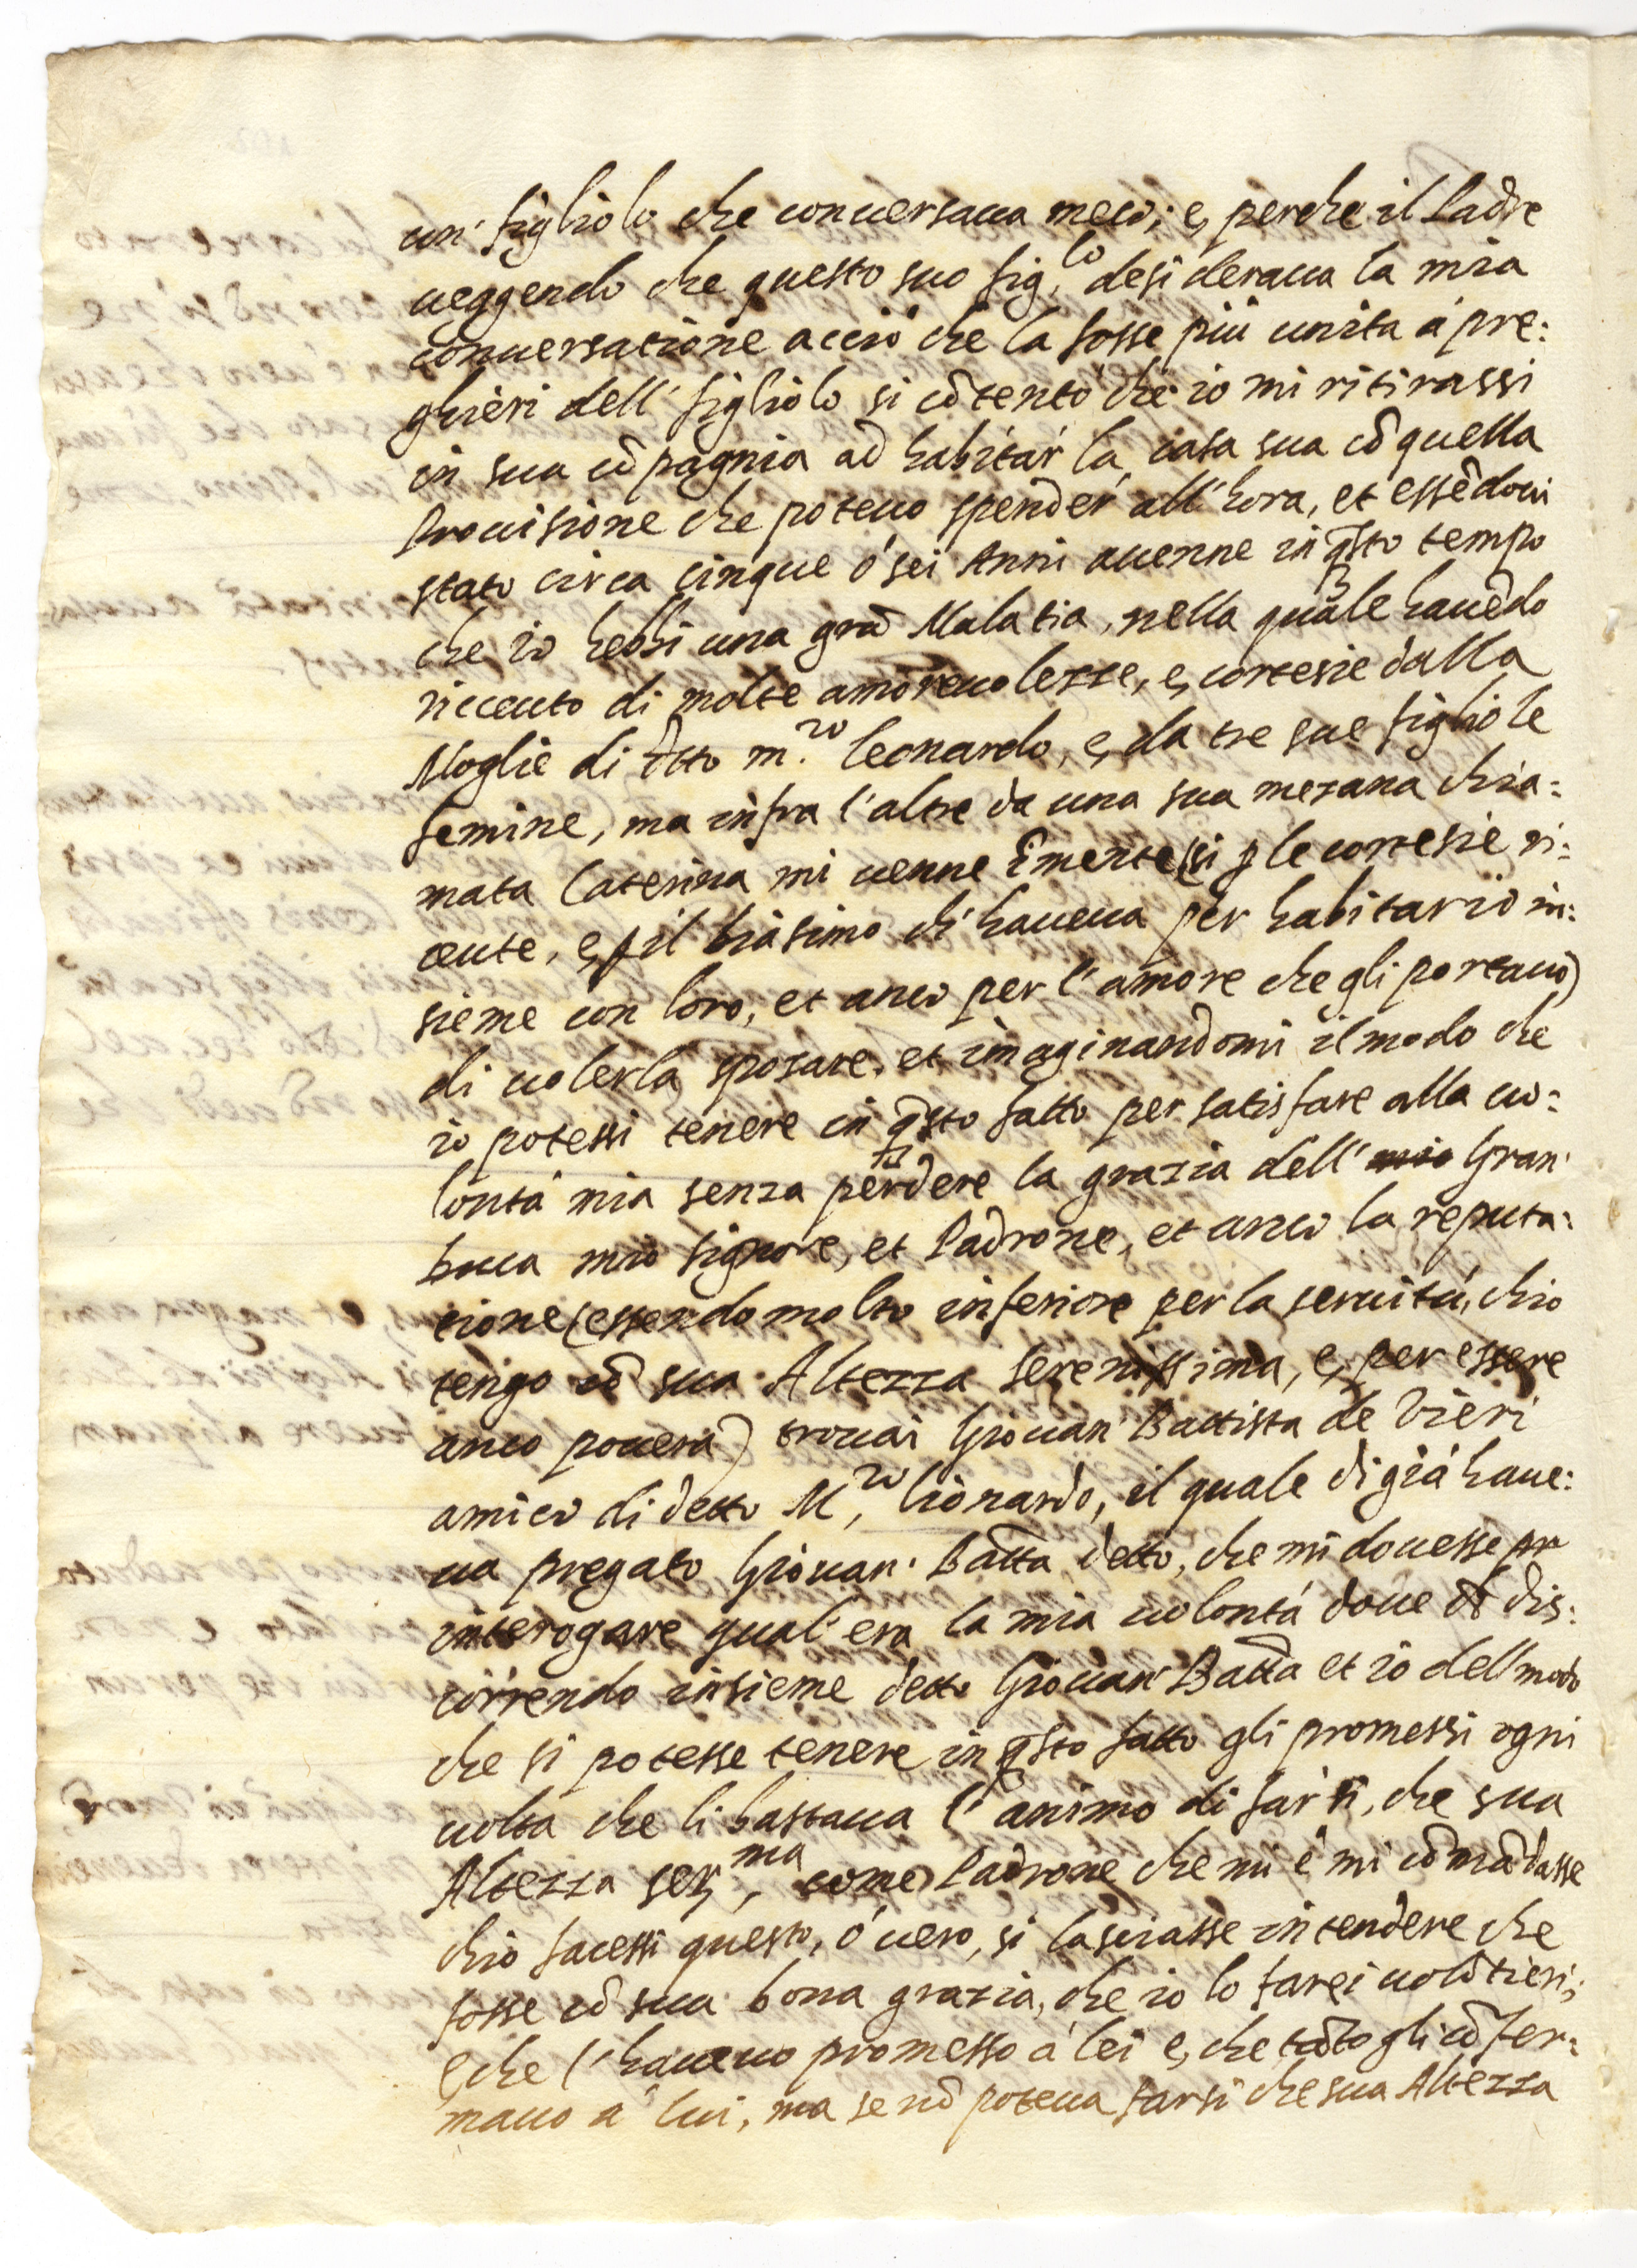 un' figliolo che conuersaua meco; e, perche il Padre
ueggendo che questo suo fig.lo desideraua la mia
conuersatione acciò che la fosse più unita á pre:
ghieri dell' figliolo si cõtentó che io mi ritirassi
in sua cõpagnia ad habitar' la casa sua cõ quella
prouisione che poteuo spender' all'hora, et essẽdoui
stato circa cinque ó sei Anni auenne in q̃sto tempo
che io hebbi una grã Malatia, nella quale hauẽdo
riceuuto di molte amoreuolezze, e, cortesie dalla
Moglie di dtto m.ro Leonardo, e, da tre sue figliole
femine, ma infra l'altre da una sua mezana chia:
mata Caterina mi uenne ĩ mente (si p le cortesie ri:
ceute, e, p il biasimo ch' haueua per habitar io in:
sieme con loro, et anco per l'amore che gli portauo)
di uolerla sposare, et imaginandomi il modo che
io potessi tenere in q̃sto fatto per satisfare alla uo:
lontá mia senza perdere la grazia dell' mio Gran'
Duca mio signore, et Padrone, et anco la reputa:
tione (essendo molto inferiore per la seruitú, chio
tengo cõ sua Altezza Serenissima, e, per essere
anco pouera) trouai Giouan' Battista de Vieri
amico di detto M,ro Lionardo, il quale di giá haue:
ua pregato Giouan' Batta detto, che mi douesse pr
interogare qual'era la mia uolontá doue dis:
correndo insieme detto Giouan' Batta et io dell modo
che si potesse tenere in q̃sto fatto gli promessi ogni
uolta che li bastaua l'animo di far' sì, che sua
Altezza Ser,ma come Padrone che mi è mi cõmãdasse
chio facessi questo, ó uero, si lasciasse intendere che
fosse cõ sua bona grazia, che io lo farei uolõtieri;
e che l'haueuo promesso á lei e, che tãto gli cõfer:
mauo a' lui, ma se nõ poteua farsi che sua Altezza